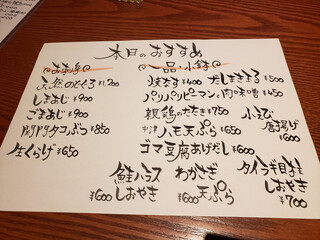 本日のおすすめ
お刺身
天然のどぐろ ¥1,200
しまあじ ¥900
ごまあじ ¥900
阿阿タコぶつ ¥850
生くらげ ¥650
一品・小鉢
焼なす ¥400 だしまき玉子 ¥500
パリパリピーマンと肉味噌 ¥450
親鶏のたたき ¥750
ハモ天ぷら ¥650
小えび唐揚げ ¥600
ゴマ豆腐あげだし ¥600
鮭ハラスしおやき ¥600
わかさぎ天ぷら ¥600
タイラギ貝
しおやき ¥700